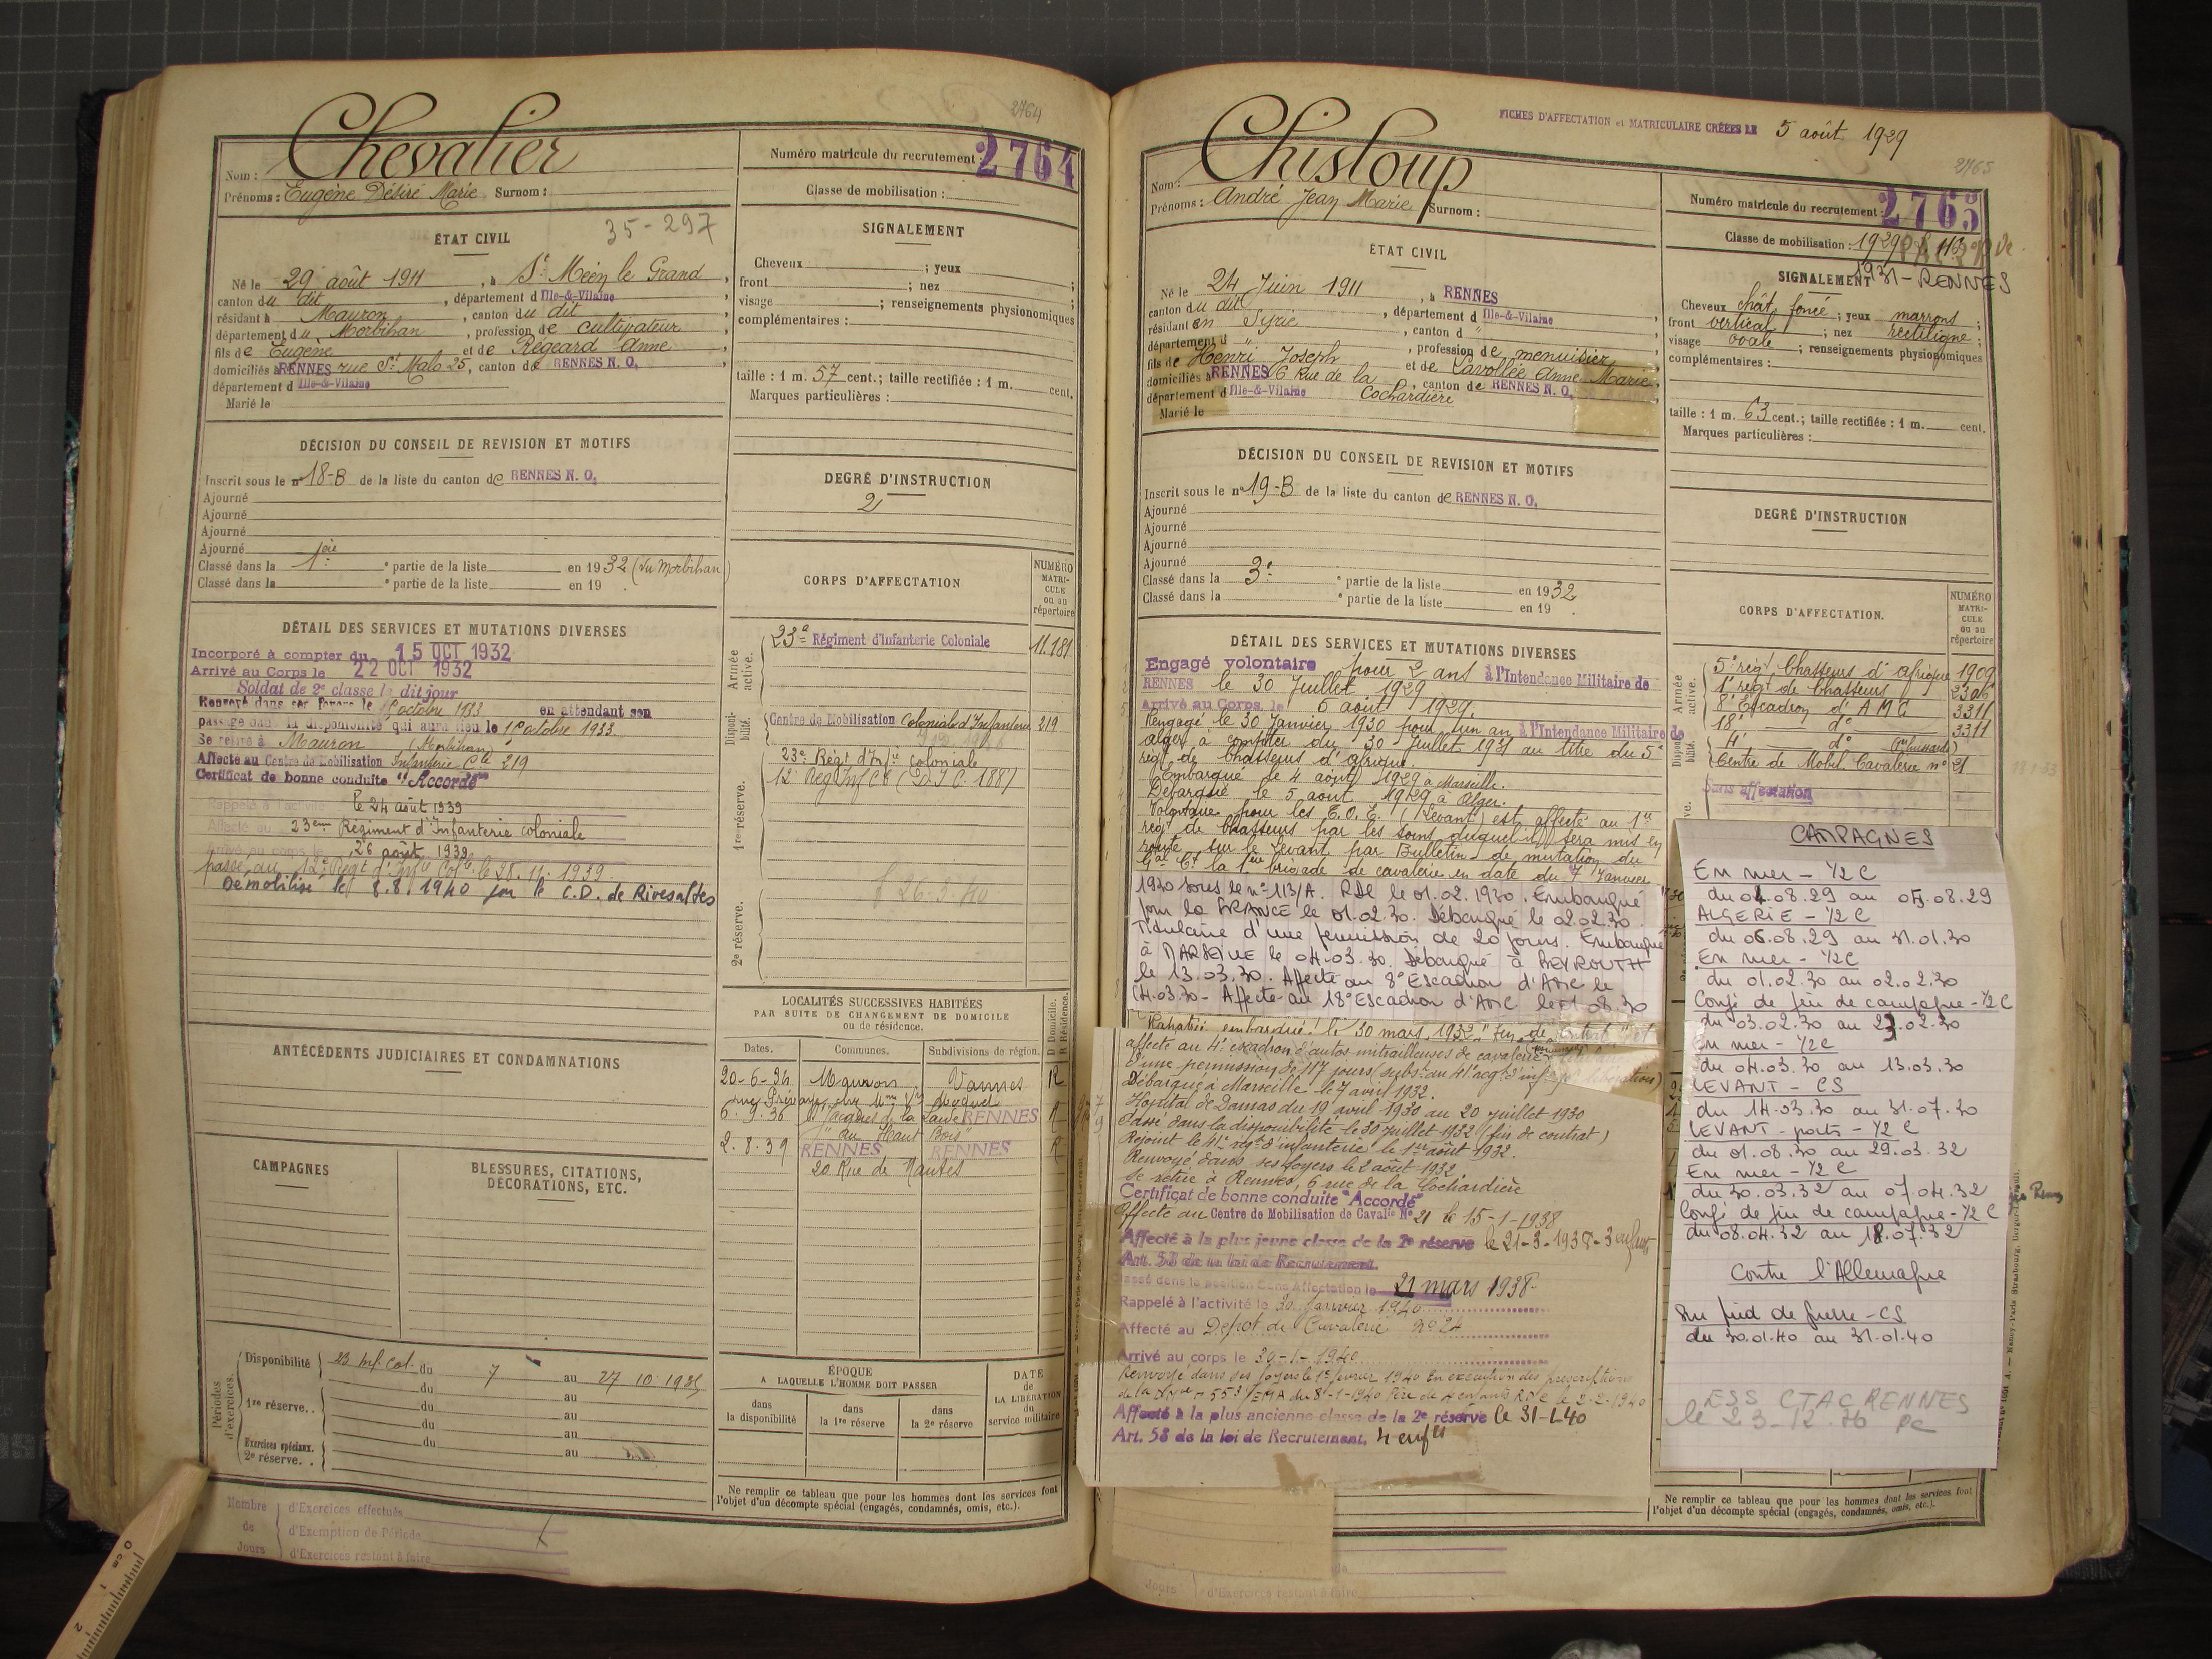 2764
Chevalier
Nom :
Prénoms : Eugène Désiré Marie Surnom :
Numéro matricule du recrutement : 2764
Classe de mobilisation :
35-297
ÉTAT CIVIL
Né le 29 août 1911, à St Méen le Grand,
canton du dit, département d Ille-&-Vilaine
résidant à Mauron, canton du dit
département du Morbihan, profession de cultivateur
fils de Eugène et de Régeard Anne
domiciliés à RENNES rue St Malo 25, canton de RENNES N. O.
département d Ille-&-Vilaine
Marié le
SIGNALEMENT
Cheveux ; yeux
front ; nez ;
visage ; renseignements physionomiques
complémentaires :
taille : 1 m. 57 cent.; taille rectifiée : 1 m. cent.
Marques particulières :
DÉCISION DU CONSEIL DE REVISION ET MOTIFS
Inscrit sous le n° 18-B de la liste du canton de RENNES N. O.
Ajourné
Ajourné
Ajourné
Ajourné
Classé dans la 1ère partie de la liste en 1932 (du Morbihan)
Classé dans la partie de la liste en 19
DEGRÉ D'INSTRUCTION
2
CORPS D'AFFECTATION
NUMÉRO MATRI-CULE ou au répertoire
Armée active.
23e Régiment d'Infanterie Coloniale 11.181
Disponi-bilité.
Centre de Mobilisation Coloniale d'Infanterie 219
1re réserve.
23e Régt d'Infie coloniale
12e Reg Inf Cle (D.I.C. 188)
f 26-3-40
2e réserve.
DÉTAIL DES SERVICES ET MUTATIONS DIVERSES
Incorporé à compter du 15 OCT 1932
Arrivé au Corps le 22 OCT 1932
Soldat de 2e classe le dit jour
Renvoyé dans ses foyers le octobre 1933 en attendant son
passage dans la disponibilité qui aura lieu le 1 octobre 1933.
Se retire à Mauron (Morbihan)
Affecté au Centre de Mobilisation Infanterie Cle 219
Certificat de bonne conduite "Accordé"
Rappelé à l'activité le 24 août 1939
Affecté au 23ème Régiment d'Infanterie coloniale
Arrivé au corps le 26 août 1939
passé au 12e Régt d'Infie Cole le 28.11.1939.
Démobilisé le 8.8.1940 par le C.D. de Rivesaltes
ANTÉCÉDENTS JUDICIAIRES ET CONDAMNATIONS
LOCALITÉS SUCCESSIVES HABITÉES
PAR SUITE DE CHANGEMENT DE DOMICILE
ou de résidence.
D Domicile. R Résidence.
Dates. Communes. Subdivisions de région.
20-6-34 Mauron Vannes R
6.9.36 St Jacques de la Lande RENNES R
"du Haut Bois"
2.8.39 RENNES RENNES R
20 Rue de Nantes
CAMPAGNES
BLESSURES, CITATIONS, DÉCORATIONS, ETC.
Périodes d'exercices.
Disponibilité 23 Inf. Col. du 7 au 27 10 1935
du au
1re réserve. . du au
du au
Exercices spéciaux. du au
2e réserve. .
ÉPOQUE
A LAQUELLE L'HOMME DOIT PASSER
dans la disponibilité
dans la 1re réserve
dans la 2e réserve
DATE de LA LIBÉRATION du service militaire
Ne remplir ce tableau que pour les hommes dont les services font
l'objet d'un décompte spécial (engagés, condamnés, omis, etc.).
Nombre de Jours
d'Exercices effectués
d'Exemption de Période
d'Exercices restant à faire
FICHES D'AFFECTATION et MATRICULAIRE CRÉÉES LE 5 août 1929
2765
Chisloup
Nom :
Prénoms : André Jean Marie Surnom :
Numéro matricule du recrutement : 2765
Classe de mobilisation : 1929
1931 - RENNES
ÉTAT CIVIL
Né le 24 Juin 1911, à RENNES
canton du dit, département d Ille-&-Vilaine
résidant en Syrie, canton d "
département d ", profession de menuisier
fils de Henri Joseph et de Lavollée Anne Marie
domiciliés à RENNES 6 Rue de la Cochardière, canton de RENNES N. O.
département d Ille-&-Vilaine
Marié le
SIGNALEMENT
Cheveux chât. foncé ; yeux marrons ;
front vertical ; nez rectiligne ;
visage ovale ; renseignements physionomiques
complémentaires :
taille : 1 m. 63 cent.; taille rectifiée : 1 m. cent.
Marques particulières :
DÉCISION DU CONSEIL DE REVISION ET MOTIFS
Inscrit sous le n° 19-B de la liste du canton de RENNES N. O.
Ajourné
Ajourné
Ajourné
Ajourné
Classé dans la 3e partie de la liste en 1932
Classé dans la partie de la liste en 19 .
DEGRÉ D'INSTRUCTION
CORPS D'AFFECTATION.
NUMÉRO MATRI-CULE ou au répertoire
Armée active.
5e régt Chasseurs d'afrique 1909
1er régt de Chasseurs 2306
8e Escadron d'A M C 3311
18e do 3311
Disponi-bilité.
4e do
Centre de Mobil. Cavalerie n° 21
Sans affectation
DÉTAIL DES SERVICES ET MUTATIONS DIVERSES
Engagé volontaire pour 2 ans à l'Intendance Militaire de
RENNES le 30 Juillet 1929
Arrivé au Corps, le 6 août 1929.
Rengagé le 30 Janvier 1930 pour un an à l'Intendance Militaire de
Alger à compter du 30 Juillet 1931 au titre du 5e
régt de Chasseurs d'afrique.
Embarqué le 4 août 1929 à Marseille.
Débarqué le 5 août 1929 à Alger.
Volontaire pour les T.O.E. (Levant) est affecté au 1er
régt de Chasseurs par les soins duquel il sera mis en
route sur le Levant par Bulletin de mutation du
Gal Ct la 1ère brigade de cavalerie en date du 7 Janvier
1930 sous le n° 113/A. RDC le 01.02.1930. Embarqué
pour la FRANCE le 01.02.30. Débarqué le 02.02.30.
Titulaire d'une permission de 20 jours. Embarqué
à MARSEILLE le 04.03.30. Débarqué à BEYROUTH
le 13.03.30. Affecté au 8e Escadron d'AMC le
14.03.30 - Affecté au 18e Escadron d'AMC le 01.08.30
Rapatrié embarqué le 30 mars 1932 "fin de
affecté au 4e escadron d'autos-mitrailleuses de cavalerie
d'une permission de 117 jours (subs. au 41e régt d'inf
Débarqué à Marseille le 7 avril 1932.
Hôpital de Damas du 19 avril 1930 au 20 juillet 1930
Passé dans la disponibilité le 30 juillet 1932 (fin de contrat)
Rejoint le 41e régt d'infanterie le 1er août 1932.
Renvoyé dans ses foyers le 2 août 1932.
Se retire à Rennes, 6 rue de la Cochardière
Certificat de bonne conduite "Accordé"
Affecté au Centre de Mobilisation de Cavalie N° 21 le 15-1-1938
Affecté à la plus jeune classe de la 2e réserve le 21-3-1938 - 3 enfants
Art. 58 de la loi de Recrutement.
Classé dans la position Sans Affectation le 21 mars 1938
Rappelé à l'activité le 30 Janvier 1940
Affecté au Dépôt de Cavalerie n° 24
Arrivé au corps le 30-1-1940
Renvoyé dans ses foyers le 1er février 1940 En exécution des prescriptions
de la n° 553/EMA du 8-1-1940 Père de 4 enfants RDC le 2-2-1940
Affecté à la plus ancienne classe de la 2e réserve le 31-1-40
Art. 58 de la loi de Recrutement. 4 enfts
CAMPAGNES
En mer - 1/2 C
du 04.08.29 au 05.08.29
ALGERIE - 1/2 C
du 06.08.29 au 31.01.30
En mer - 1/2 C
du 01.02.30 au 02.02.30
Congé de fin de campagne - 1/2 C
du 03.02.30 au 23.02.30
En mer - 1/2 C
du 04.03.30 au 13.03.30
LEVANT - CS
du 14.03.30 au 31.07.30
LEVANT - ports - 1/2 C
du 01.08.30 au 29.03.32
En mer - 1/2 C
du 30.03.32 au 07.04.32
Congé de fin de campagne - 1/2 C
du 08.04.32 au 18.07.32
Contre l'Allemagne
Sur pied de guerre - CS
du 30.01.40 au 31.01.40
ESS CTAC RENNES
le 23-12-76
Ne remplir ce tableau que pour les hommes dont les services font
l'objet d'un décompte spécial (engagés, condamnés, omis, etc.).
Jours d'Exercices restant à faire